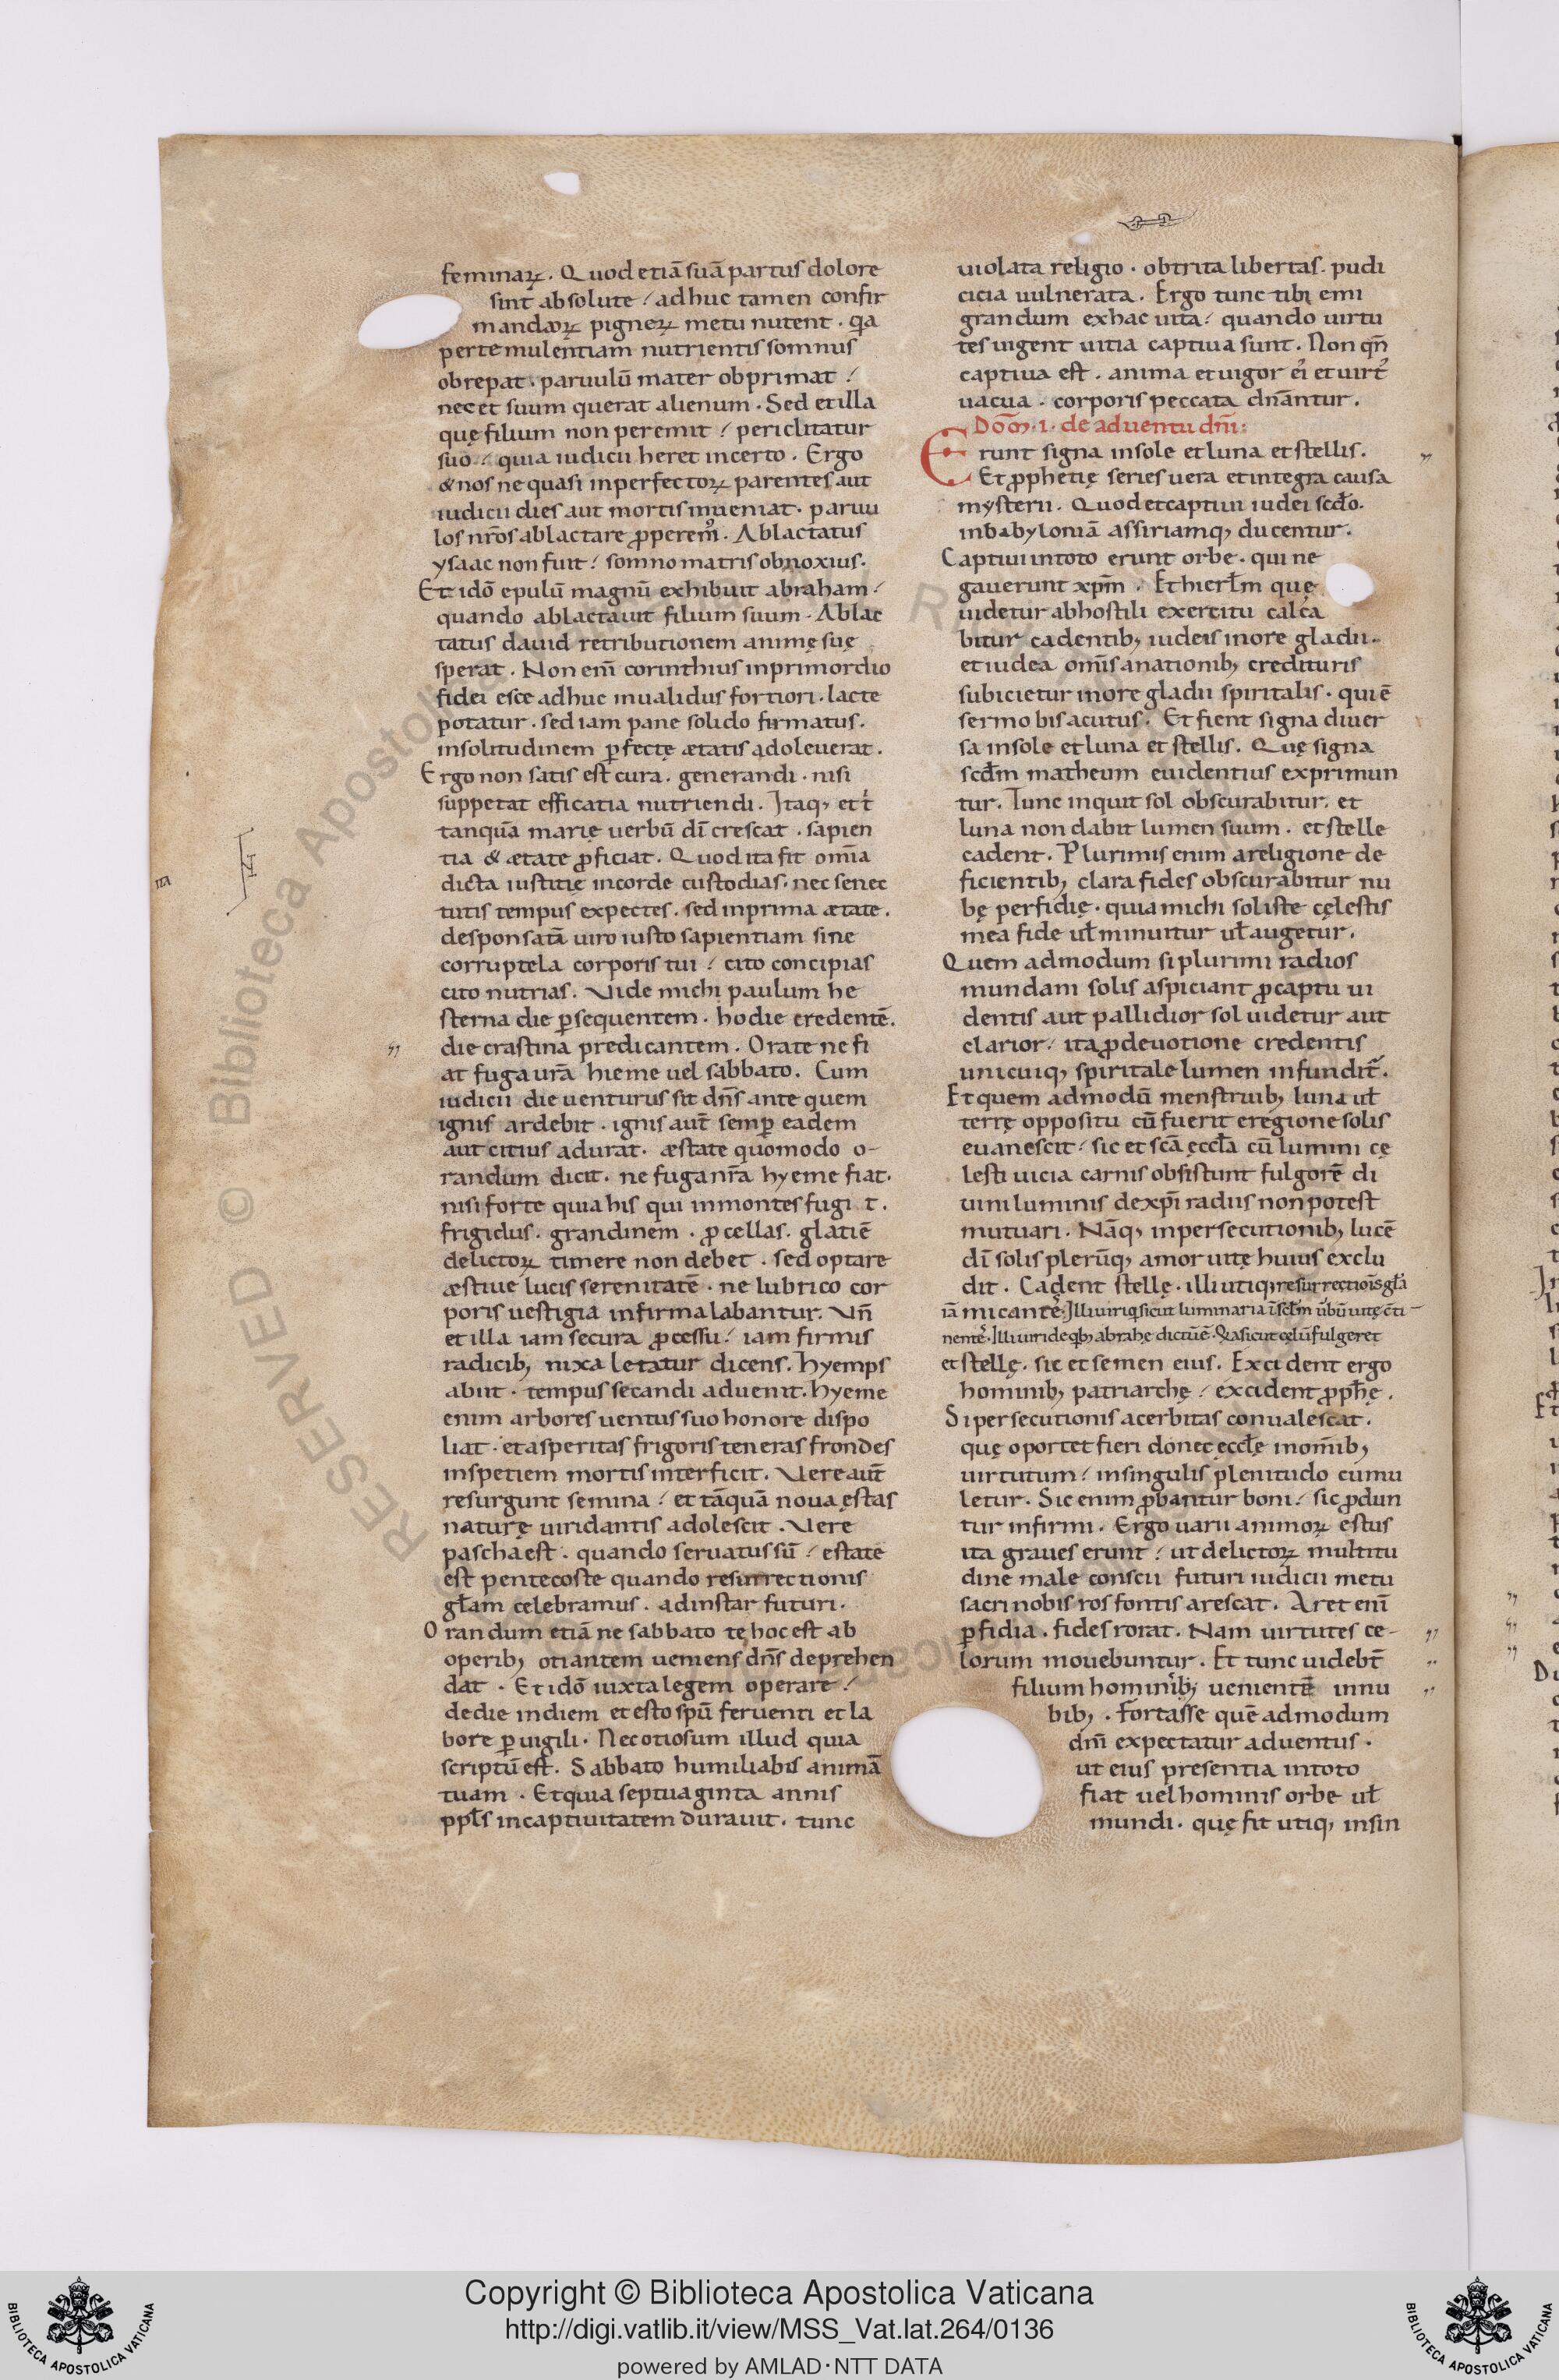 feminaꝝ. Quod etiā suā partus dolore
sint absolute / adhuc tamen confir
mandaꝝ pigneꝝ metu nutent. q̄a
per temulentiam nutrientis somnus
obrepat. paruulū mater obprimat /
nec et suum querat alienum. Sed et illa
quę filium non peremit / periclitatur
suo / quia iudicii heret incerto. Ergo
& nos ne quasi inperfectoꝝ parentes aut
iudicii dies aut mortis inueniat. paruu
los nr̄os ablactare ꝓperem᷒. Ablactatus
ysaac non fuit / somno matris obnoxius.
Et idō epulū magnū exhibuit abraham /
quando ablactauit filium suum. Ablac
tatus dauid retributionem animę suę
sperat. Non eni̅ corinthius inprimordio
fidei esce adhuc inualidus fortiori. lacte
potatur. sed iam pane solido firmatus.
insolitudinem ꝑfectę ætatis adoleuerat.
Ergo non satis est cura. generandi. nisi
suppetat efficatia nutriendi. Itaqꝫ et t̄
tanquā marię uerbū dī crescat. sapien
tia & ætate ꝓficiat. Quod ita fit om̄ia
dicta iustitię incorde custodias. nec senec
tutis tempus expectes. sed inprima ætate.
desponsatā uiro iusto sapientiam sine
corruptela corporis tui / cito concipias
cito nutrias. Vide michi paulum he
sterna die ꝑsequentem. hodie credentē.
die crastina predicantem. Orate ne fi
at fuga ur̄a hieme uel sabbato. Cum
iudicii die uenturus sit dn̄s ante quem
ignis ardebit. ignis aut̄ semꝑ eadem
aut citius adurat. æstate quomodo o-
randum dicit. ne fuga nr̄a hyeme fiat.
nisi forte quia his qui inmontes fugi t.
frigidus. grandinem. ꝓcellas. glatiē
delictoꝝ timere non debet. sed optare
æstiue lucis serenitatē. ne lubrico cor
poris uestigia infirma labantur. Vn̄
et illa iam secura ꝓcessu / iam firmis
radicibꝫ nixa letatur dicens. Hyemps
abiit. tempus secandi aduenit. Hyeme
enim arbores uentus suo honore dispo
liat. et asperitas frigoris teneras frondes
inspetiem mortis interficit. Vere aut̄
resurgunt semina / et tāquā noua ęstas
naturę uiridantis adolescit. Vere
pascha est. quando seruatus sū / estate
est pentecoste quando resurrectionis
gl̄am celebramus. adinstar futuri.
Orandum etiā ne sabbato te hoc est ab
operibꝫ otiantem ueniens dn̄s deprehen
dat. Et idō iuxta legem operare /
dedie indiem et esto spū feruenti et la
bore ꝑuigili. Nec otiosum illud quia
scriptū est. Sabbato humiliabis animā
tuam. Et quia septuaginta annis
ppl̄s incaptiuitatem durauit. tunc
uiolata religio. obtrita libertas. pudi
cicia uulnerata. Ergo tunc tibi emi
grandum exhac uita / quando uirtu
tes uigent uitia captiua sunt. Non qn̄
captiua est. anima et uigor ei᷒ et uirt᷒
uacua. corporis peccata dn̄antur.
Dom̄. i. de aduentu dn̄i:
Erunt signa insole et luna et stellis.
Et ꝓphetię series uera et integra causa
mysterii. Quod et captiui iudei scd̄o.
inbabyloniā assiriamqꝫ ducentur.
Captiui intoto erunt orbe. qui ne
gauerunt xp̄m. Et hierl̄m quę
uidetur abhostili exercitu calca
bitur cadentibꝫ iudeis inore gladii.
et iudea om̄is anationibꝫ credituris
subicietur inore gladii spiritalis. qui ē
sermo bis acutus. Et fient signa diuer
sa insole et luna et stellis. Quę signa
scd̄m matheum euidentius exprimun
tur. Tunc inquit sol obscurabitur. et
luna non dabit lumen suum. et stelle
cadent. Plurimis enim areligione de
ficientibꝫ clara fides obscurabitur nu
bę perfidię. quia michi sol iste cęlestis
mea fide ul̄ minuitur ul̄ augetur.
Quem admodum si plurimi radios
mundani solis aspiciant ꝓcaptu ui
dentis aut pallidior sol uidetur aut
clarior / ita ꝓdeuotione credentis
unicuiqꝫ spiritale lumen infundit᷒.
Et quem admodū menstruibꝫ luna ul̄
terrę oppositu cū fuerit eregione solis
euanescit / sic et scā ęccl̄a cū lumini cę
lesti uicia carnis obsistunt fulgorē di
uini luminis dexpī radiis non potest
mutuari. Nāqꝫ inpersecutionibꝫ lucē
dī solis plerūqꝫ amor uitę huius exclu
dit. Cadent stellę. illi utiqꝫ resurrectiōis gl̄a
iā micantę. Illi uiri qͥ sicut luminaria ī scl̄m u̅bū uitę cōti-
nentę. Illi uiri de qͥbꝫ abrahę dictū ē. Qͣa sicut cęlū fulgeret
et stellę. sic et semen eius. Excident ergo
hominibꝫ patriarchę / excident ꝓph̄ę.
Si persecutionis acerbitas conualescat.
quę oportet fieri donec ęccl̄ę inom̄ibꝫ
uirtutum / insingulis plenitudo cumu
letur. Sic enim ꝓbantur boni / sic ꝓdun
tur infirmi. Ergo uarii animoꝝ estus
ita graues erunt / ut delictoꝝ multitu
dine male conscii futuri iudicii metu
sacri nobis ros fontis arescat. Aret eni̅
ꝑfidia. fides rorat. Nam uirtutes ce-
lorum mouebuntur. Et tunc uidebt̄
filium hominibꝫ uenientē innu
bibꝫ. Fortasse quē admodum
dn̄i expectatur aduentus.
ut eius presentia intoto
fiat uel hominis orbe ul̄
mundi. quę fit utiqꝫ insin
RESERVED © Biblioteca Apostolica
Copyright © Biblioteca Apostolica Vaticana
http://digi.vatlib.it/view/MSS_Vat.lat.264/0136
powered by AMLAD·NTT DATA
BIBLIOTECA APOSTOLICA VATICANA
BIBLIOTECA APOSTOLICA VATICANA